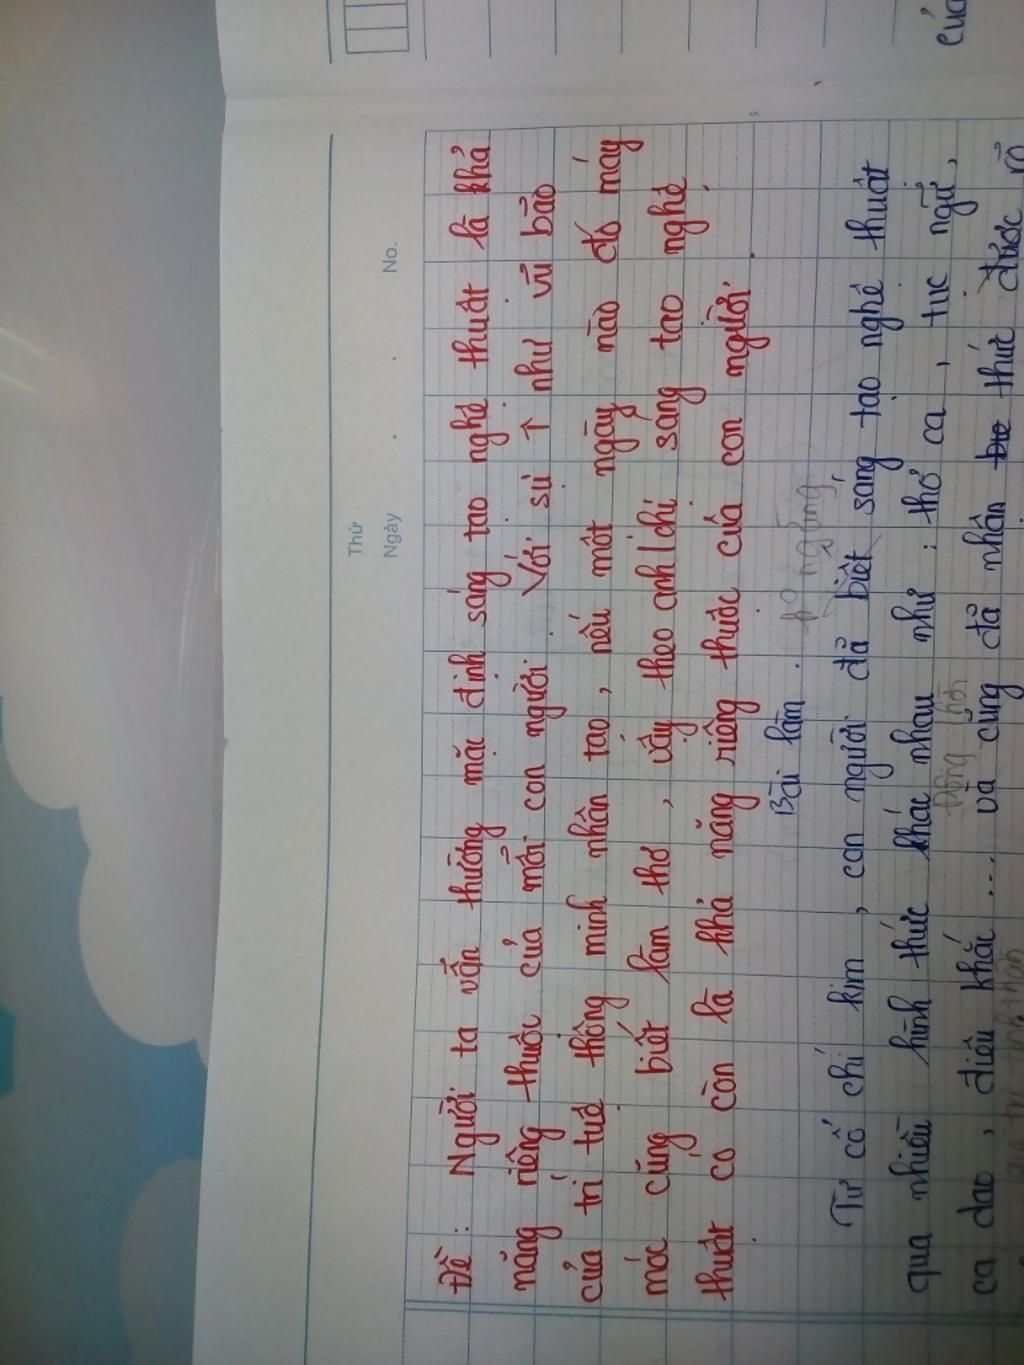 Thứ
Ngày . . No.
Đề : Người ta vẫn thường mặc định sáng tạo nghệ thuật là khả
năng riêng thuộc của mỗi con người. Với sự ↑ như vũ bão
của trí tuệ thông minh nhân tạo, nếu một ngày nào đó máy
móc cũng biết làm thơ, vậy theo anh/chị sáng tạo nghệ
thuật có còn là khả năng riêng thuộc của con người.
Bài làm.
Từ cổ chí kim, con người đã biết sáng tạo nghệ thuật
qua nhiều hình thức khác nhau như: thơ ca, tục ngữ,
ca dao, điêu khắc... và cũng đã nhân thức được rõ
của